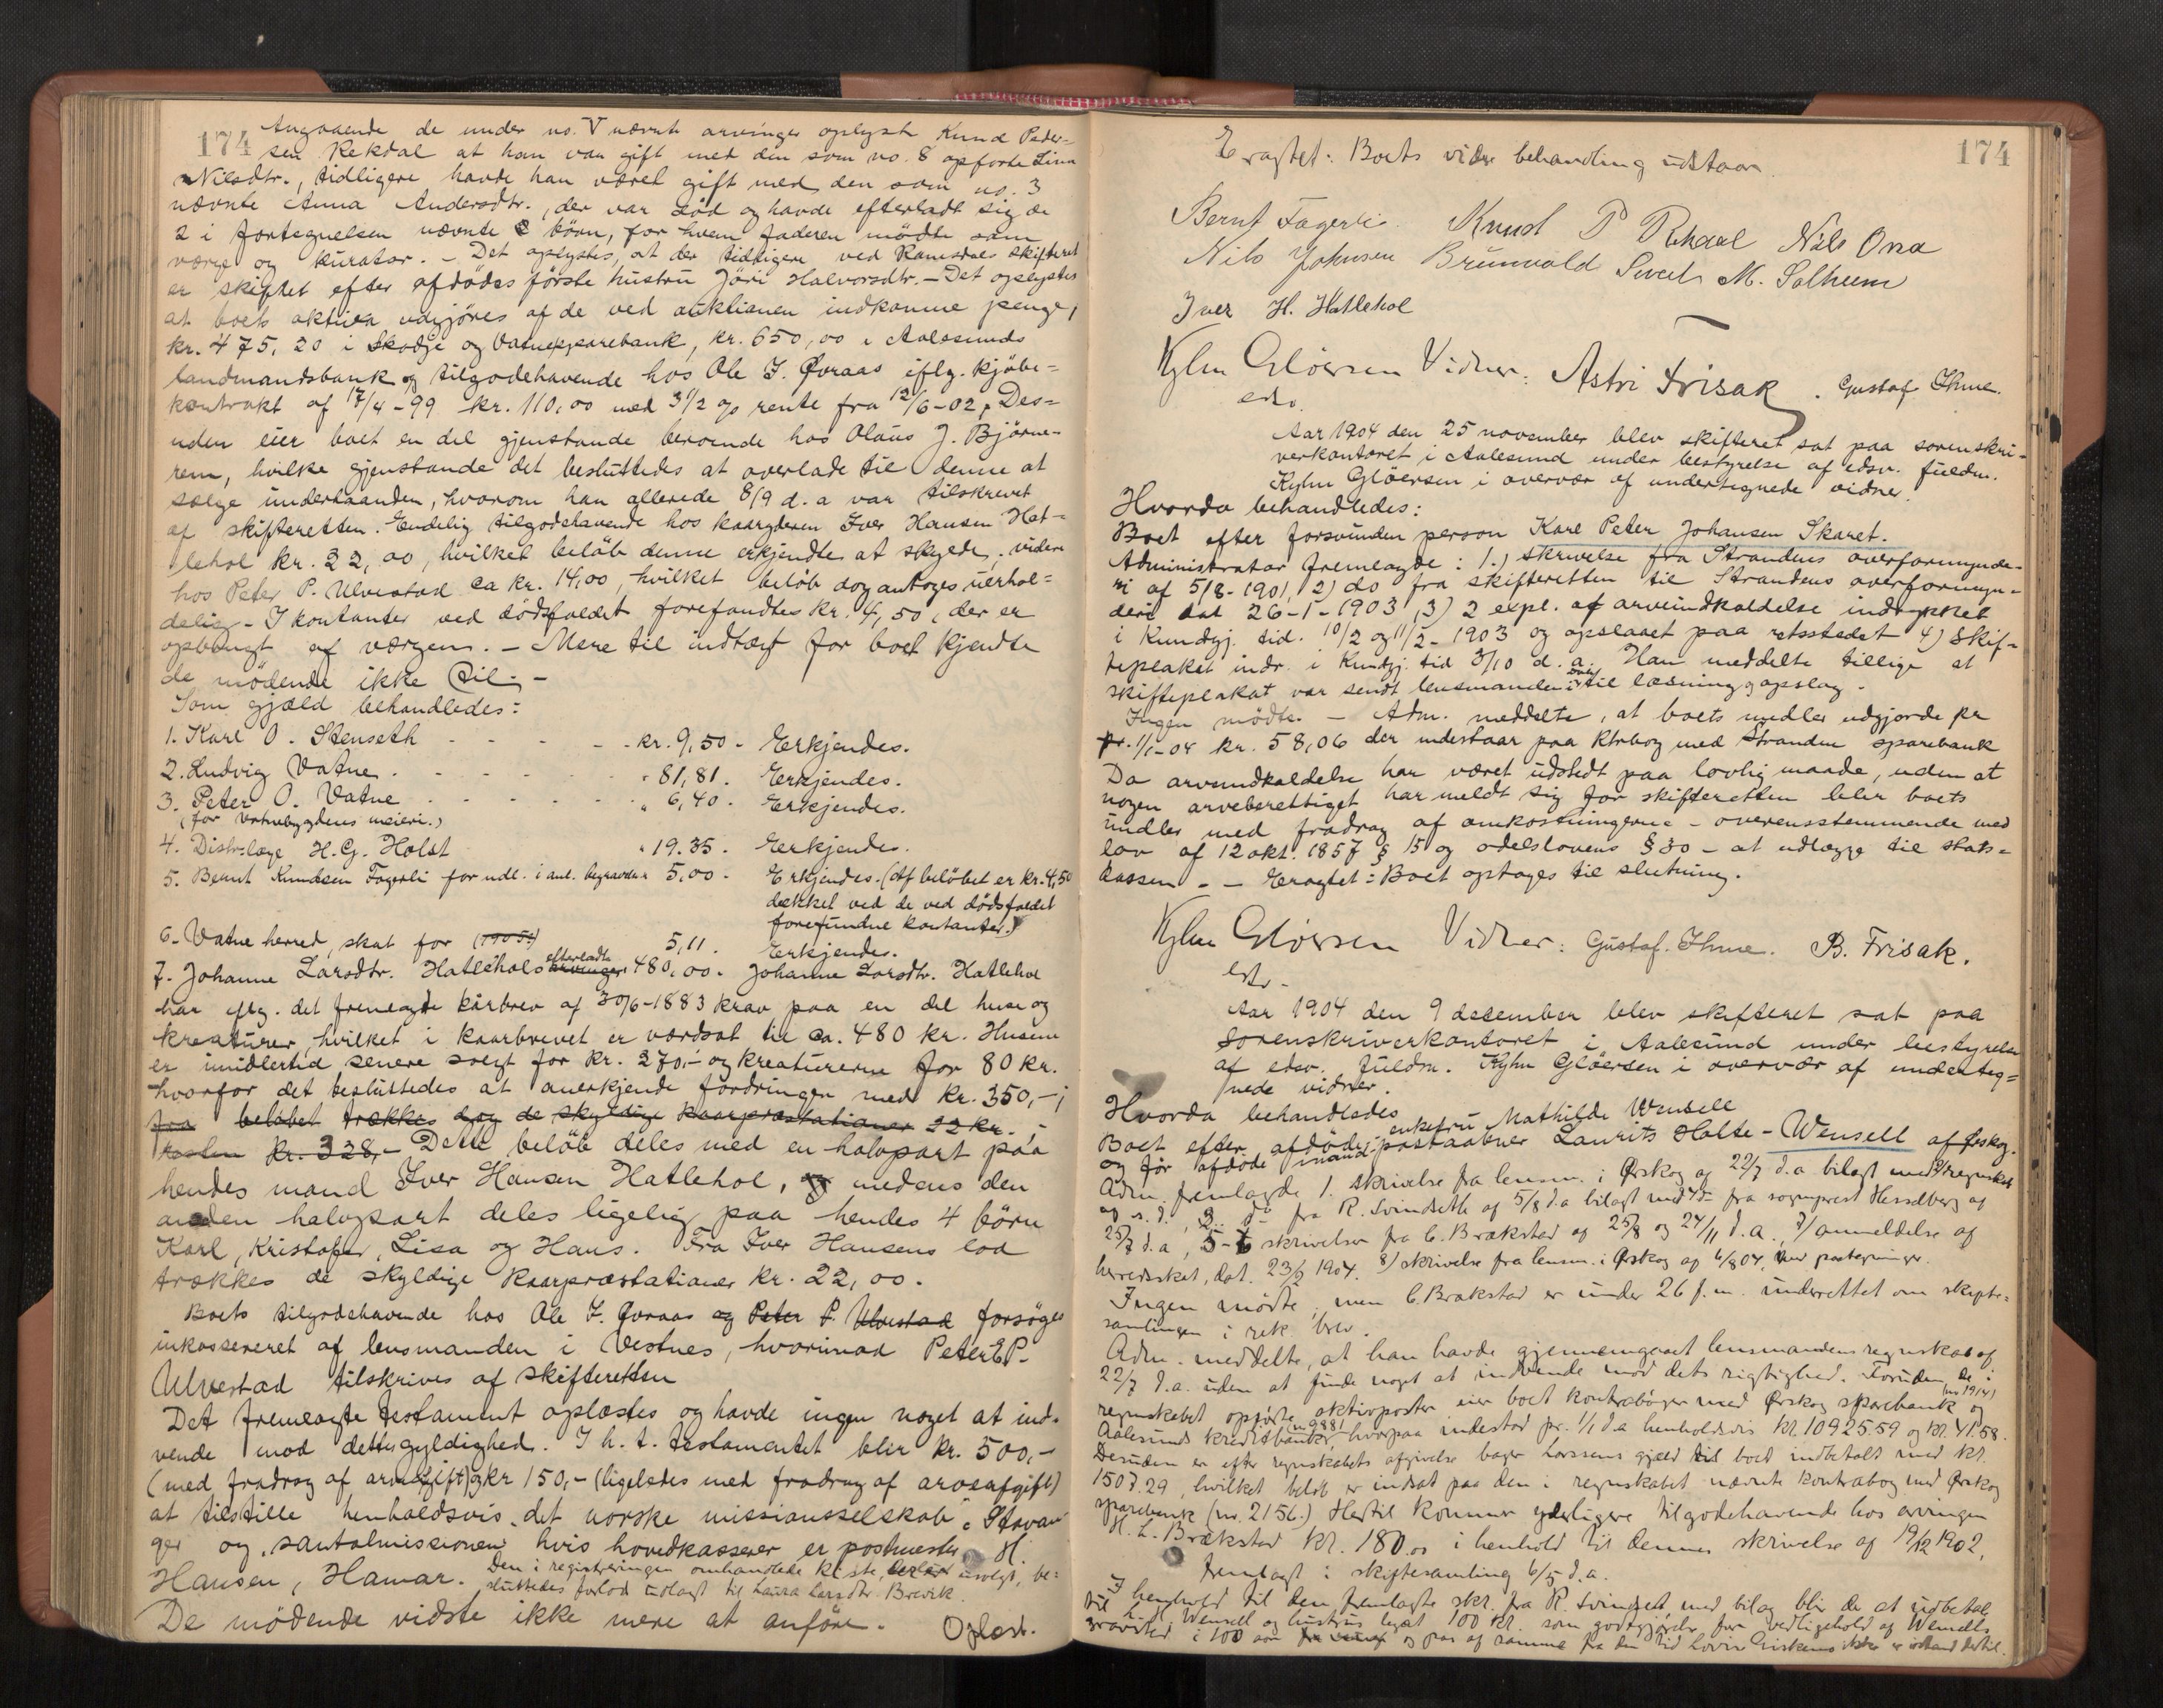 174 Angaaende de under no. V nævnte arvinger oplyste Knud Peder-
sen Rekdal at han var gift med den som no. 8 opførte Lina
Nilsdtr., tidligere havde han været gift med den som no. 3
nævnte Anna Andersdtr., der var död og havde efterladt sig de
2 i fortegnelsen nævnte börn, for hvem faderen mödte som
værge og kurator. - Det oplystes, at der tidligere ved Romsdals skifteret
er skiftet efter afdödes förste hustru Jöri Halvorsdtr. - Det oplystes
at boets aktiva udgjöres af de ved auktionen indkomne penge,
kr. 475,20 i Skodje og Vatne sparebank, kr. 650,00 i Aalesunds
landmandsbank og tilgodehavende hos Ole J. Øvraas iflg. kjöbe-
kontrakt af 17/4-99 kr. 110,00 med 3 1/2 % rente fra 12/6-02. Des-
uden eier boet en del gjenstande beroende hos Olaus J. Björne-
rem, hvilke gjenstande det besluttedes at overlade til denne at
sælge underhaanden, hvorom han allerede 8/9 d.a var tilskrevet
af skifteretten. Endelig tilgodehavende hos kaaryderen Iver Hansen Hat-
lehol kr. 22,00, hvilket belöb denne erkjendte at skylde; videre
hos Peter P. Ulvestad ca kr. 14,00, hvilket belöb dog antoges uerhol-
delig. - I kontanter ved dödsfaldet forefandtes kr. 4,50, der er
opbrugt af værgen. - Mere til indtægt for boet kjendte
de mödende ikke til. -
Som gjæld behandledes:
1. Karl O. Stenseth - - - - kr. 9,50 - Erkjendes.
2. Ludvig Vatne - - - - " 81,81. Erkjendes.
3. Peter O. Vatne - - - - " 6,40. Erkjendes.
(for Vatnebygdens meieri.)
4. Distr.læge H. G. Holst " 19.35. Erkjendes.
5. Bernt Knudsen Fagerli for udl. i anl. begravelse 5,00 - Erkjendes. (Af belöbet er kr. 4,50
dækket ved de ved dödsfaldet
forefundne kontanter.)
6. Vatne herred, skat for (1905?) 5,11. Erkjendes.
7. Johanne Larsdtr. Hatlehols efterladte arvinger 480,00. Johanne Larsdtr. Hatlehol
har iflg. det fremlagte kårbrev af 30/6-1883 krav paa en del huse og
kreaturer, hvilket i kaarbrevet er værdsat til ca. 480 kr. Husene
er imidlertid senere solgt for kr. 270,- og kreaturerne for 80 kr.
hvorfor det besluttedes at anerkjende fordringen med kr. 350,-;
fra belöbet trækkes dog de skyldige kaarpræstationer 22 kr.
kr. 328,- Dette belöb deles med en halvpart paa
hendes mand Iver Hansen Hatlehol, og medens den
anden halvpart deles ligelig paa hendes 4 börn
Karl, Kristofer, Lisa og Hans. Fra Iver Hansens lod
trækkes de skyldige kaarpræstationer kr. 22,00.
Boets tilgodehavende hos Ole J. Øvraas og Peter P. Ulvestad forsöges
inkassereret af lensmanden i Vestnes, hvorimod Peter P.
Ulvestad tilskrives af skifteretten
Det fremlagte testament oplæstes og havde ingen noget at ind-
vende mod dettes gyldighed. I h. t. testamentet blir kr. 500,-
(med fradrag af arveafgift) og kr 150,- (ligeledes med fradrag af arveafgift)
at tilstille henholdsvis "det norske missionsselskab" Stavan-
ger og "santalmissionen" hvis hovedkasserer er postmester H.
Hansen, Hamar. Den i registreringen omhandlede kiste, usolgt, be-
sluttedes udlagt til Laura Larsdtr. Brevik.
De mödende vidste ikke mere at anföre. Oplæst.
174
Eragtet: Boets videre behandling udstaar.
Bernt Fagerli. Knud P Rekdal Nils Ona
Nils Johnsen Brunvold Sivert M. Solheim
Iver H. Hatlehol
Kyhn Gløersen Vidner: Astri Frisak. Gustaf Ihme.
edsv.
Aar 1904 den 25 november blev skifteret sat paa sorenskri-
verkontoret i Aalesund under bestyrelse af edsv. fuldm.
Kyhn Glöersen i overvær af undertegnede vidner.
Hvorda behandledes:
Boet efter forsvunden person Karl Peter Johansen Skaret.
Administrator fremlagde: 1.) skrivelse fra Strandens overformynde-
ri af 5/8-1901, 2) do fra skifteretten til Strandens overformyn-
deri dat. 26-1-1903, 3) 2 expl. af arveindkaldelse indrykket
i Kundgj. tid. 10/2 og 11/2-1903 og opslaaet paa retsstedet 4) Skif-
teplakat indr. i Kundgj. tid 3/10 d. a. Han meddelte tillige at
skifteplakat var sendt lensmanden i til læsning og opslag -
Ingen mödte. - Adm. meddelte, at boets midler udgjorde pr
pr. 1/1-04 kr. 58,06 der indestaar paa ktrbog med Stranden sparebank
Da arveindkaldelse har været udstedt paa lovlig maade, uden at
nogen arveberettiget har meldt sig for skifteretten blir boets
midler med fradrag af omkostningerne - overensstemmende med
lov af 12 okt. 1857 § 15 og odelslovens § 30 - at udlægge til stats-
kassen. - - Eragtet: Boet optages til slutning.
Kyhn Gløersen Vidner: Gustaf. Ihme. B. Frisak.
edsv.
Aar 1904 den 9 december blev skifteret sat paa
sorenskriverkontoret i Aalesund under bestyrelse
af edsv. fuldm. Kyhn Glöersen i overvær af underteg-
nede vidner.
Hvorda behandledes
enkefru Mathilde Wensell
Boet efter afdöde postaabner Laurits Holte-Wensell af Ørskog.
og før afdöde mand
Adm. fremlagde 1. skrivelse fra lensm. i Ørskog af 22/7 d.a bilagt med regnskab
af s. d., 3. do fra R. Svindseth af 5/8 d.a bilagt med 4do fra sogneprest Hesselberg af
25/7 d.a, 5-6 skrivelser fra C. Brækstad af 25/8 og 24/11 d.a., 7/ anmeldelse af
herredsskat, dat. 23/2 1904. 8) skrivelse fra lensm. i Ørskog af 6/8 04, med paategninger.
Ingen mödte; men C. Brækstad er under 26 f.m. underrettet om skifte-
samlingen i rek. brev.
Adm. meddelte, at han havde gjennemgaaet lensmandens regnskab af
22/7 d.a. uden at finde noget at indvende mod dets rigtighed. Foruden de i
regnskabet opførte aktivposter eier boet kontrabøger med Ørskog sparebank (no 1914) og
Aalesunds kreditbank (no. 9881), hvorpaa indestod pr. 1/1 d.a henholdsvis kr. 10925.59 og kr. 41.58.
Desuden er efter regnskabets afgivelse bager Larssens gjæld til boet indbetalt med kr.
1507.29, hvilket beløb er indsat paa den i regnskabet nævnte kontrabog med Ørskog
sparebank (no. 2156.) Hertil kommer yderligere tilgodehavende hos arvingen
H. L. Brækstad kr. 180.00 i henhold til dennes skrivelse af 19/12 1902,
fremlagt i skiftesamling 6/5 d.a.
I henhold til den fremlagte skr. fra R. Svindseth med bilag blir der at udbetale
til L. H. Wensell og hustrus legat 100 kr. som godtgjørelse for vedligehold af Wensells
gravsted i 100 aar og pas af samme fra den tid er istand dertil.